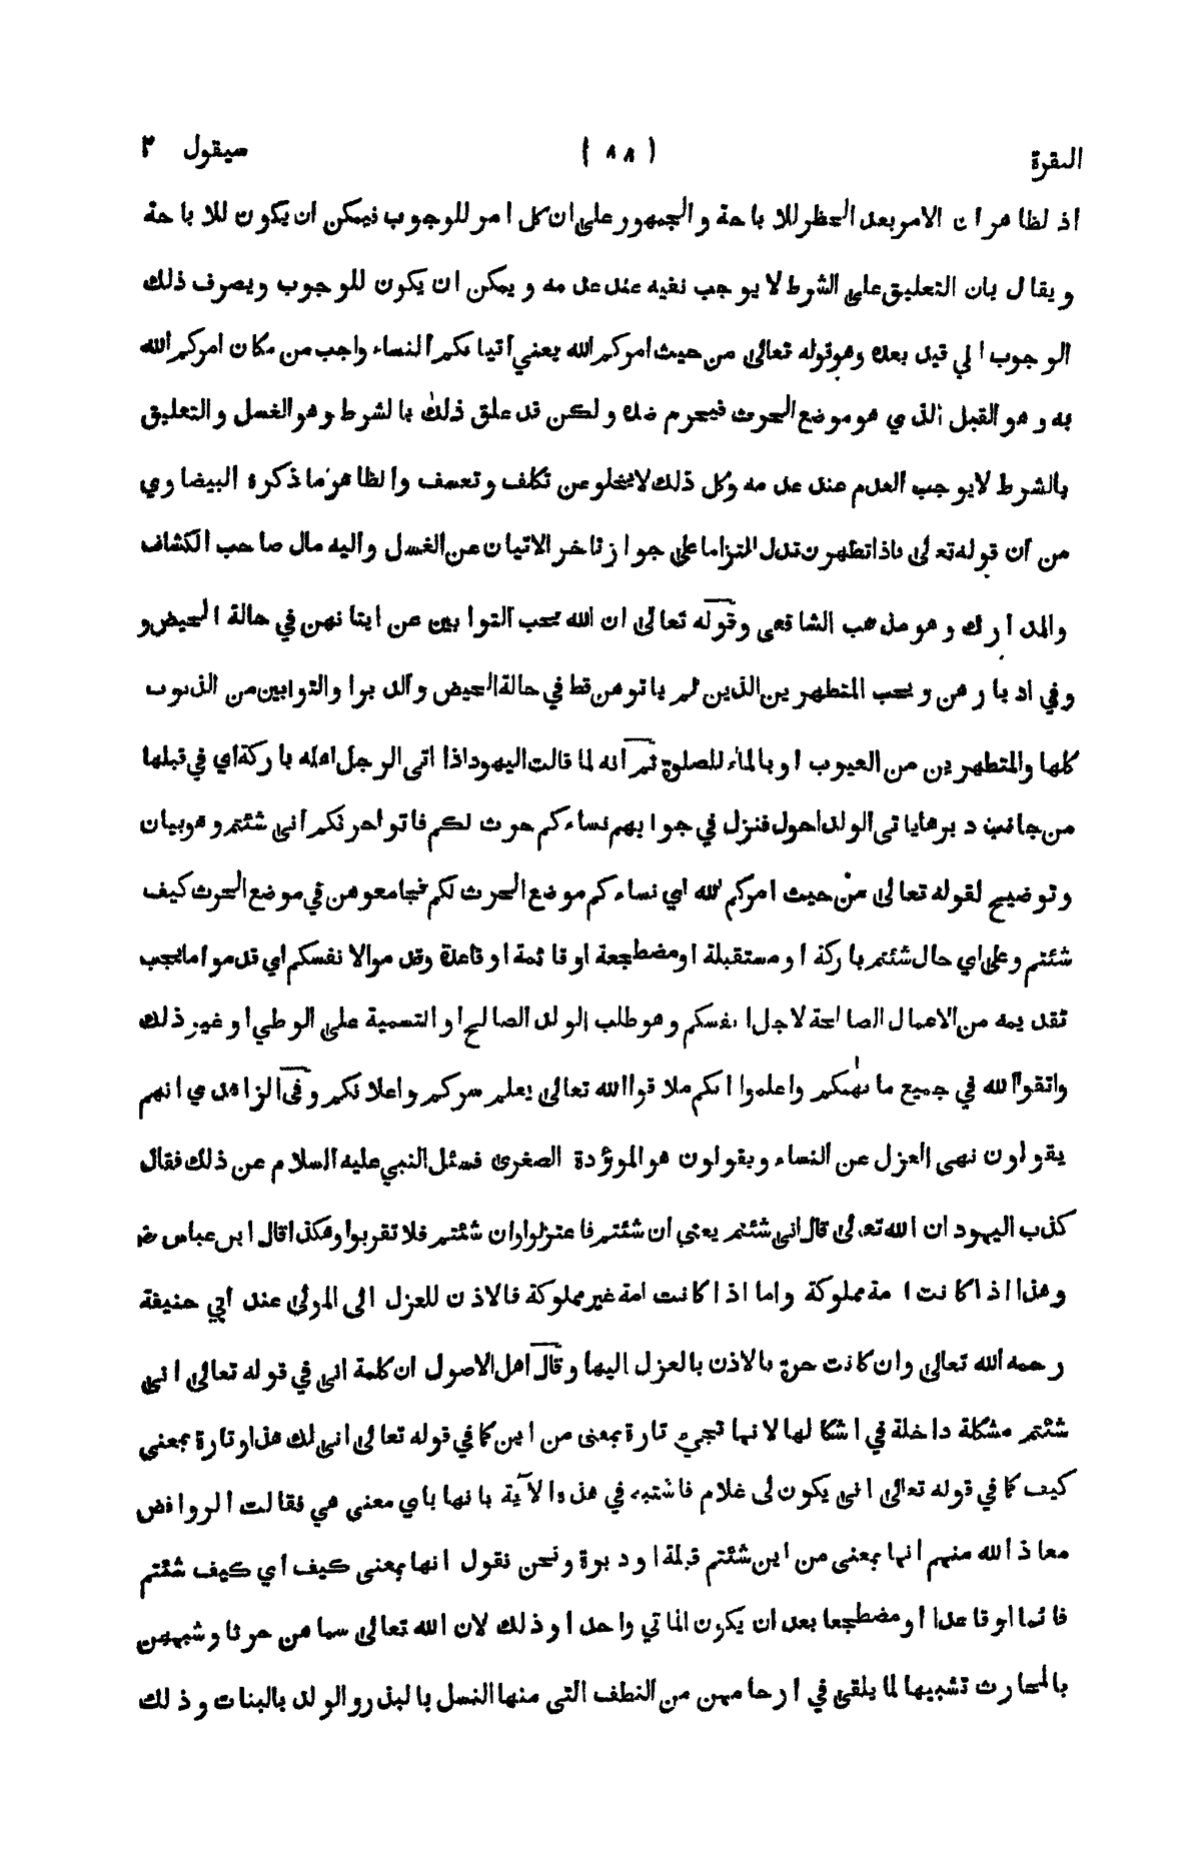 البقرة ( ٨٨ ) سيقول ٢
اذ لظاهر ان الامر بعد الحظر للاباحة والجمهور على ان كل امر للوجوب فيمكن ان يكون للاباحة
ويقال بان التعليق على الشرط لا يوجب نفيه عند عدمه ويمكن ان يكون للوجوب ويصرف ذلك
الوجوب الي قيد بعده وهو قوله تعالى من حيث امركم الله يعني اتيانكم النساء واجب من مكان امركم الله
به وهو القبل الذي هو موضع الحرث فيحرم ضده ولكن قد علق ذلك بالشرط وهو الغسل والتعليق
بالشرط لايوجب العدم عند عدمه وكل ذلك لايخلو عن تكلف وتعسف والظاهر ما ذكره البيضاوي
من ان قوله تعالى فاذا تطهرن تدل التزاما على جواز تاخر الاتيان عن الغسل واليه مال صاحب الكشاف
والمدارك وهو مذهب الشافعى وقوله تعالى ان الله يحب التوابين عن ايتانهن في حالة الحيض و
وفي ادبارهن ويحب المتطهرين الذين لم ياتوهن قط في حالة الحيض والدبوا والتوابين من الذنوب
كلها والمتطهرين من العيوب او بالماء للصلوة ثم انه لما قالت اليهود اذا اتى الرجل اهله باركة اي في قبلها
من جانب دبرها ياتى الولد احول فنزل في جوابهم نساءكم حرث لكم فاتوا حرثكم انى شئتم وهو بيان
وتوضيح لقوله تعالى من حيث امركم لله اي نساءكم موضع الحرث لكم فجامعوهن في موضع الحرث كيف
شئتم وعلى اي حال شئتم باركة او مستقبلة او مضطجعة او قائمة او قاعدة وقدموا لانفسكم اي قدموا ما يجب
تقديمه من الاعمال الصالحة لاجل انفسكم وهو طلب الولد الصالح او التسمية على الوطي او غير ذلك
واتقوا الله في جميع ما نهيكم واعلموا انكم ملاقوا الله تعالى يعلم سركم واعلانكم وفى الزاهدي انهم
يقولون نهى العزل عن النساء ويقولون هو الموؤدة الصغرى فسئل النبي عليه السلام عن ذلك فقال
كذب اليهود ان الله تعالى قال انى شئتم يعني ان شئتم فاعتزلوا وان شئتم فلا تقربوا وهكذا قال ابن عباس رض
وهذا اذا كانت امة مملوكة واما اذا كانت امة غير مملوكة فالاذن للعزل الى المولى عند ابي حنيفة
رحمه الله تعالى وان كانت حرة فالاذن بالعزل اليها وقال اهل الاصول ان كلمة انى في قوله تعالى انى
شئتم مشكلة داخلة في اشكالها لانها تجيء تارة بمعنى من اين كما في قوله تعالى انى لك هذا وتارة بمعنى
كيف كما في قوله تعالى انى يكون لى غلام فاشتبه في هذه الآية بانها باي معنى هي فقالت الروافض
معاذ الله منهم انها بمعنى من اين شئتم قبلة او دبرة ونحن نقول انها بمعنى كيف اي كيف شئتم
قائما او قاعدا او مضطجعا بعد ان يكون الماتي واحدا وذلك لان الله تعالى سماهن حرثا وشبههن
بالمحارث تشبيها لما يلقى في ارحامهن من النطف التى منها النسل بالبذر والولد بالبنات وذلك